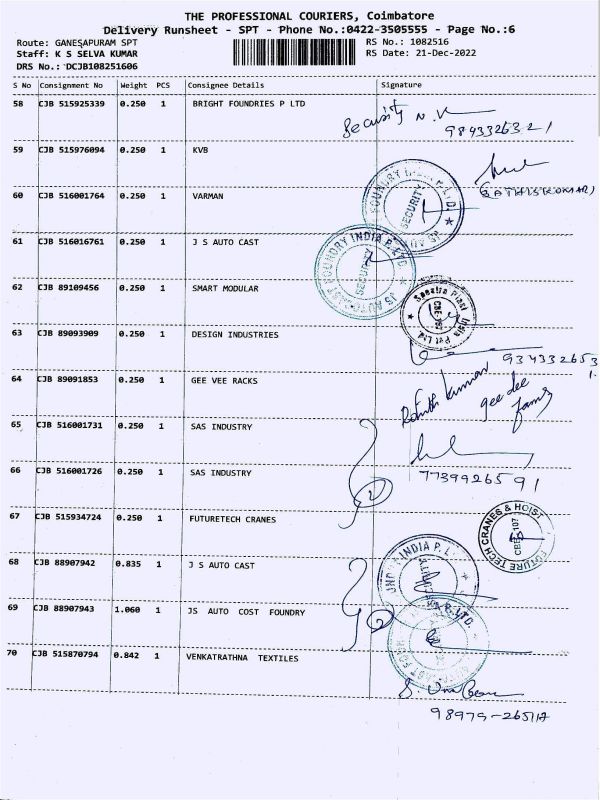 THE PROFESSIONAL COURIERS, Coimbatore
Delivery Runsheet - SPT - Phone No.:0422-3505555 - Page No.:6
Route: GANESAPURAM SPT
RS No.: 1082516
Staff: K S SELVA KUMAR
RS Date: 21-Dec-2022
DRS No.: DCJB108251606
S No Consignment No Weight PCS Consignee Details Signature
58 CJB 515925339 0.250 1 BRIGHT FOUNDRIES P LTD
Security N.K
9843326321
59 CJB 515976094 0.250 1 KVB
60 CJB 516001764 0.250 1 VARMAN
(SATHISHKUMAR)
FOUNDRY INDIA P. LTD. JS AUTO
SECURITY
61 CJB 516016761 0.250 1 J S AUTO CAST
JS AUTOCAST FOUNDRY INDIA P. LTD
SECURITY
62 CJB 89109456 0.250 1 SMART MODULAR
Spectra Plast India Pvt Ltd.
63 CJB 89093909 0.250 1 DESIGN INDUSTRIES
934332653
64 CJB 89091853 0.250 1 GEE VEE RACKS
kumar
gee dee
65 CJB 516001731 0.250 1 SAS INDUSTRY
66 CJB 516001726 0.250 1 SAS INDUSTRY
2
7739926591
67 CJB 515934724 0.250 1 FUTURETECH CRANES
FUTURE TECH CRANES & HOIST
68 CJB 88907942 0.835 1 J S AUTO CAST
INDIA P. L
69 CJB 88907943 1.060 1 JS AUTO COST FOUNDRY
2
P. LTD.
70 CJB 515870794 0.842 1 VENKATRATHNA TEXTILES
98979-26517